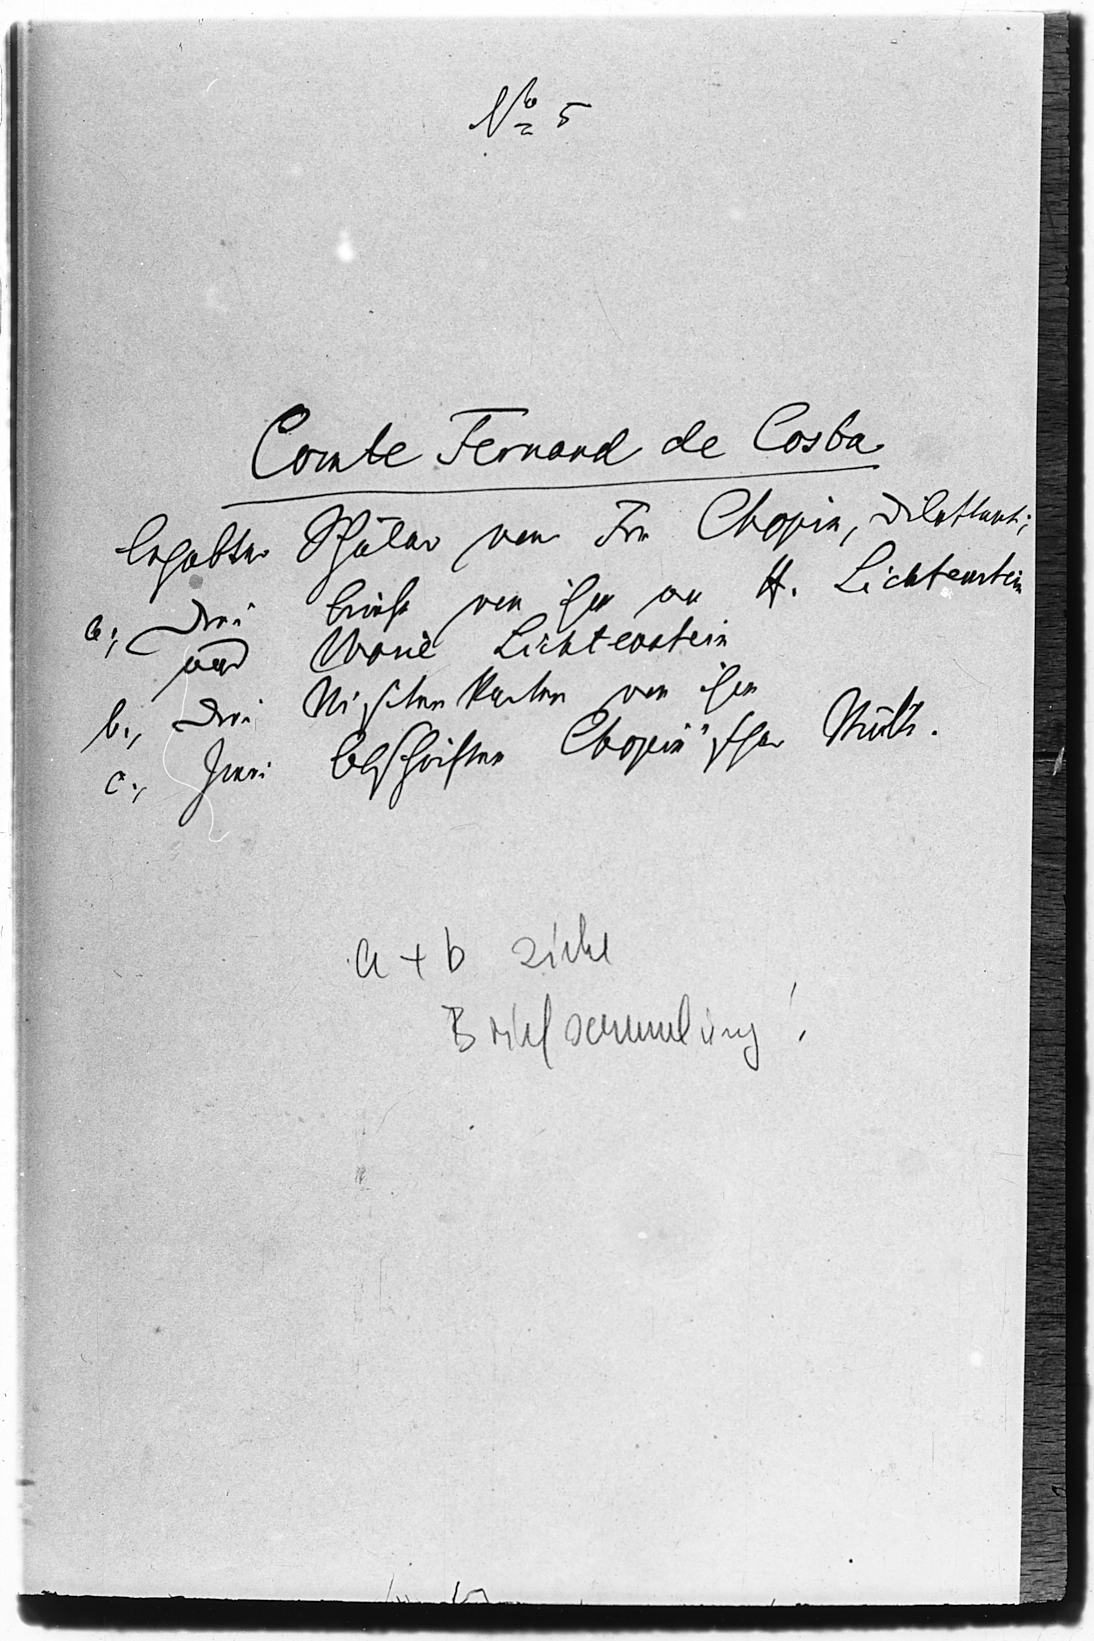 No 5
Comte Fernand de Costa
begabter Schüler von Fr. Chopin, Dilettant;
a., Drei Briefe von ihm an H. Lichtenstein
und Marie Lichtenstein
b., Drei Visitenkarten von ihm
c., Zwei Abschriften Chopin'scher
a + b siehe
Briefsammlung!